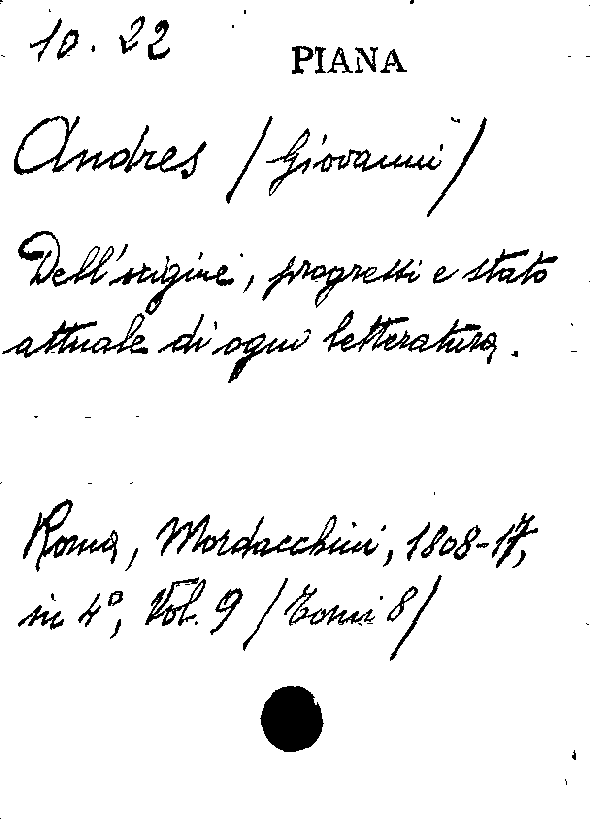 10. 22
PIANA
Andres /Giovanni/
Dell'origine, progressi e stato
attuale di ogni letteratura.
Roma, Mordacchini, 1808-17,
in 4°, Vol. 9 /Tomi 8/